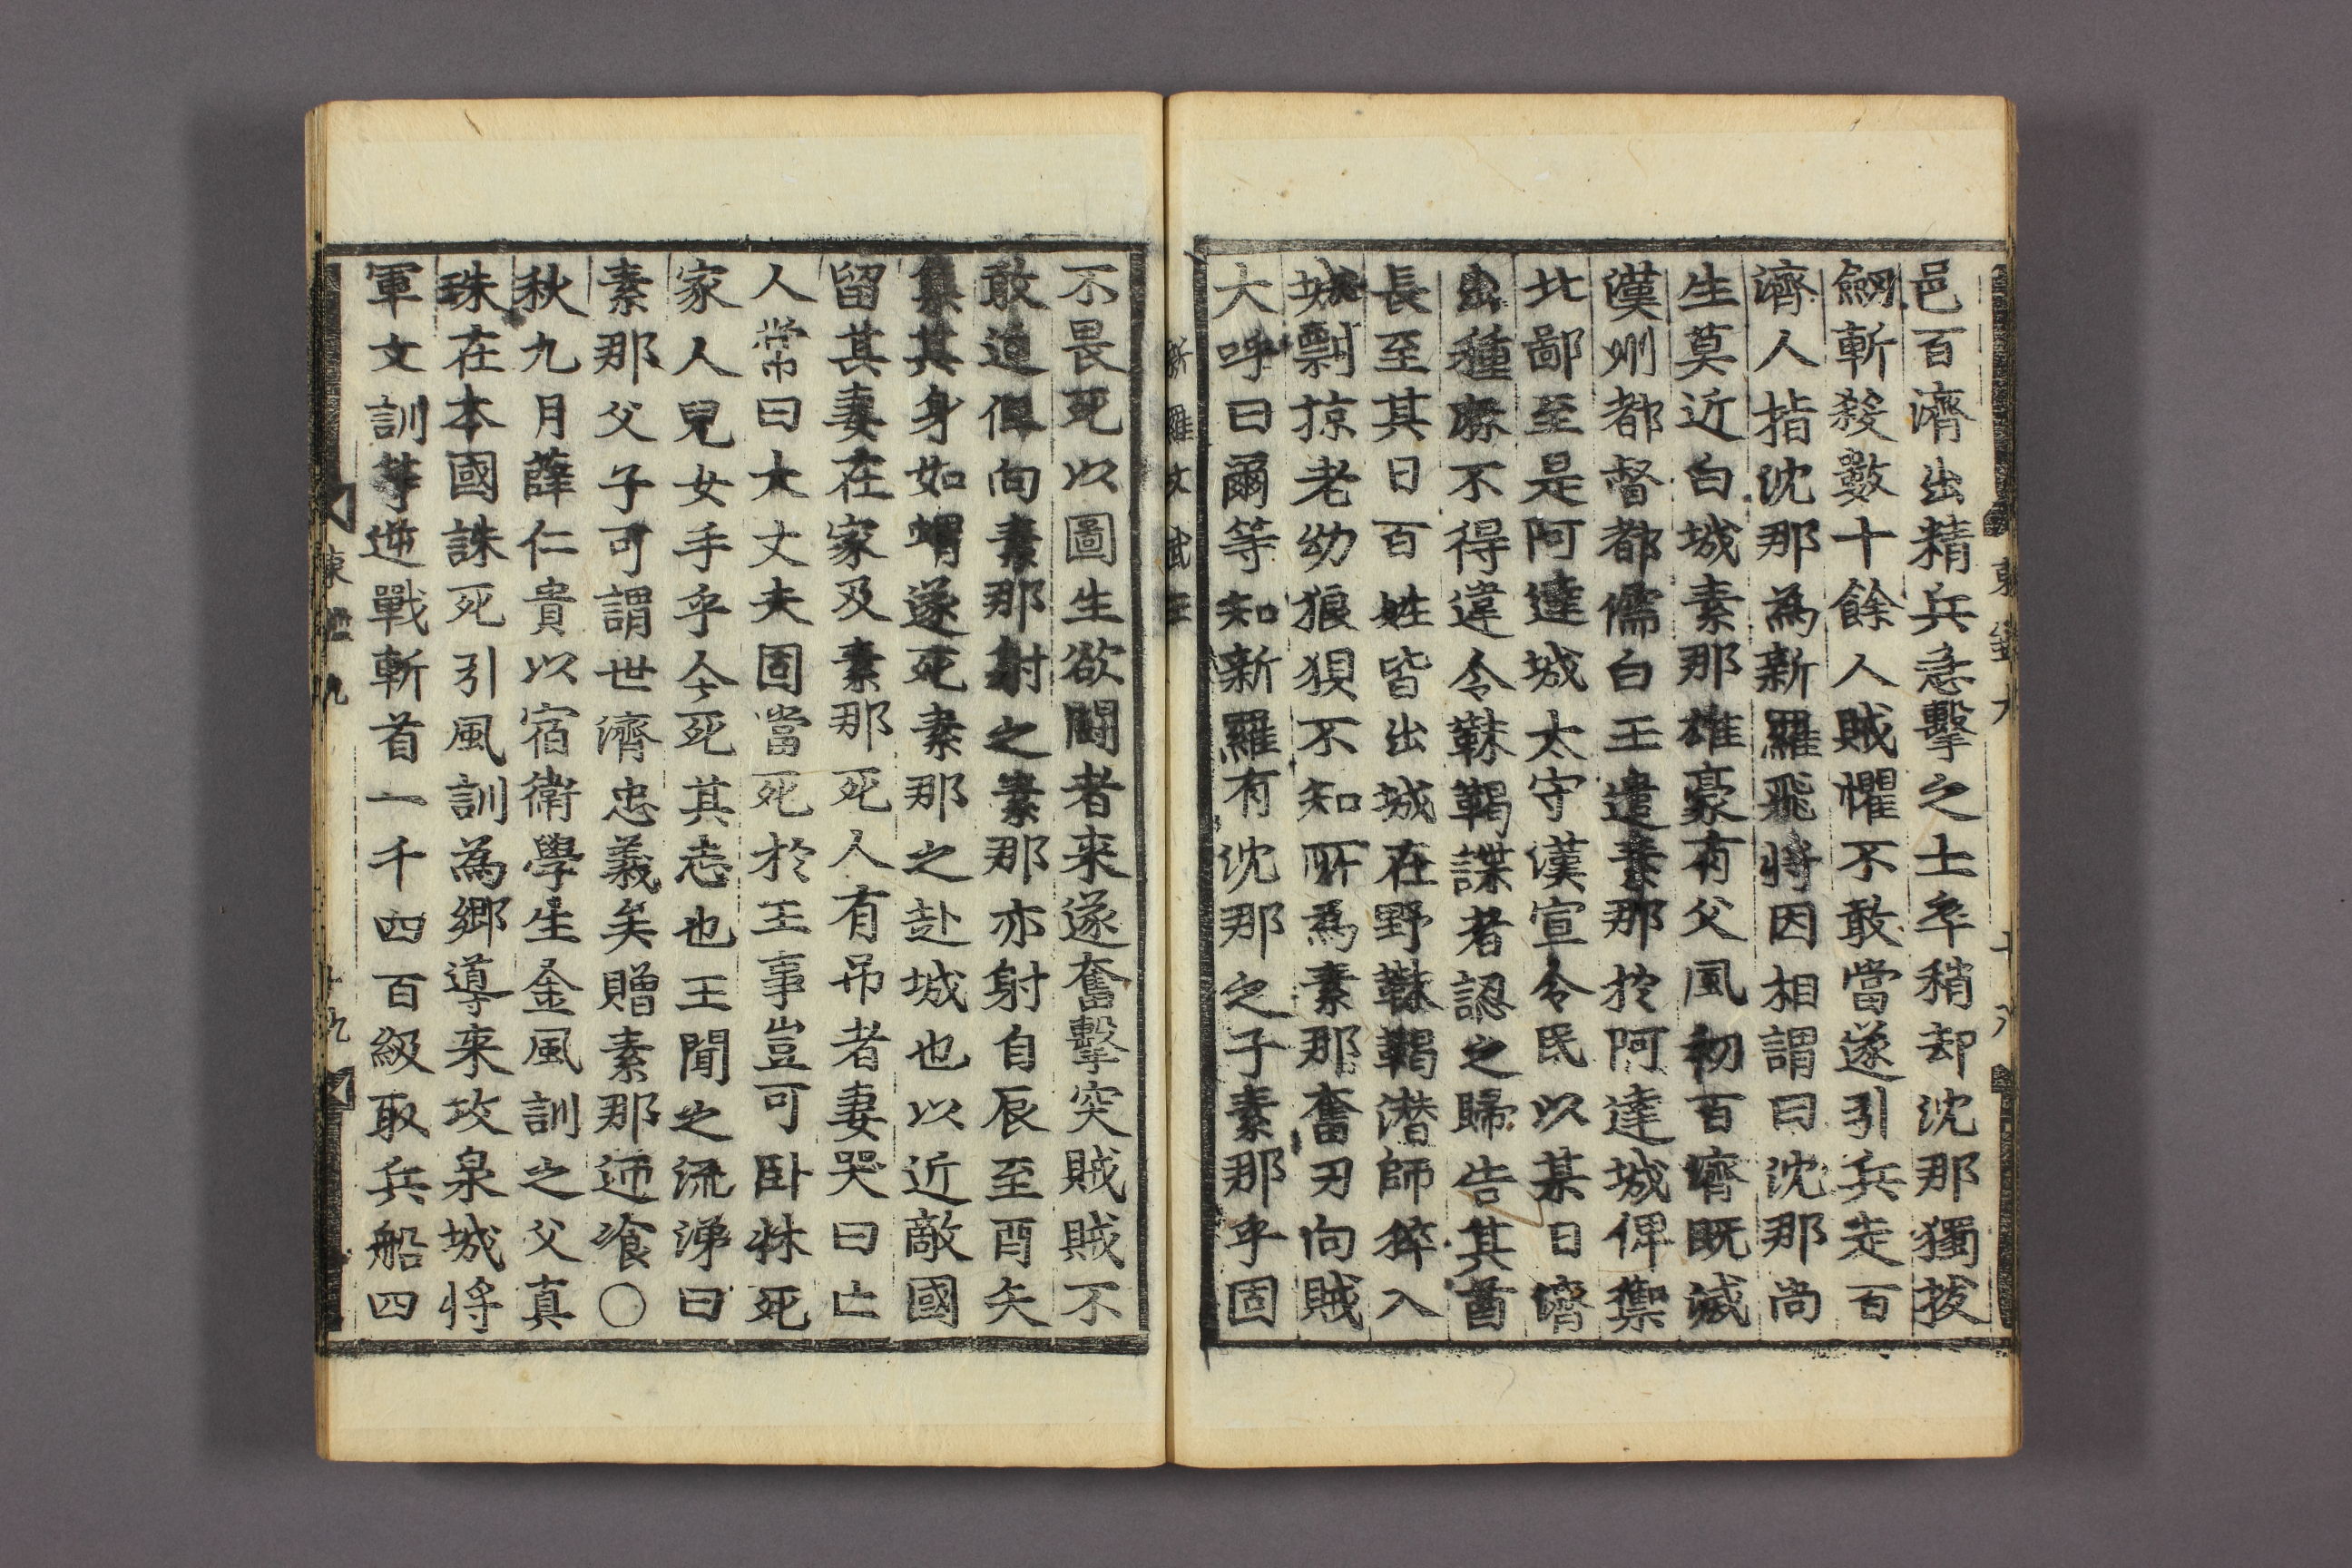 邑百濟出精兵急擊之士卒稍却沈那獨拔
劒斬殺數十餘人賊懼不敢當遂引兵走百
濟人指沈那為新羅飛將因相謂曰沈那尚
生莫近白城素那雄豪有父風初百濟既滅
漢州都督都儒白王遣素那於阿達城俾禦
北鄙至是阿達城太守漢宣令民以某日濟
出種麻不得違令靺鞨諜者認之歸告其酋
長至其日百姓皆出城在野靺鞨潛師猝入
城剽掠老幼狼狽不知所爲素那奮刃向賊
大呼曰爾等知新羅有沈那之子素那乎固
新羅文武王
不畏死以圖生欲鬪者来遂奮擊突賊賊不
敢迫但向素那射之素那亦射自辰至酉矢
集其身如蝟遂死素那之赴城也以近敵國
留其妻在家及素那死人有吊者妻哭曰亡
人常曰大丈夫固當死於王事豈可卧牀死
家人兒女手乎今死其志也王聞之流涕曰
素那父子可謂世濟忠義矣贈素那迊飡〇
秋九月薛仁貴以宿衛學生金風訓之父真
珠在本國誅死引風訓為鄉導来攻泉城將
軍文訓等逆戰斬首一千四百級取兵船四